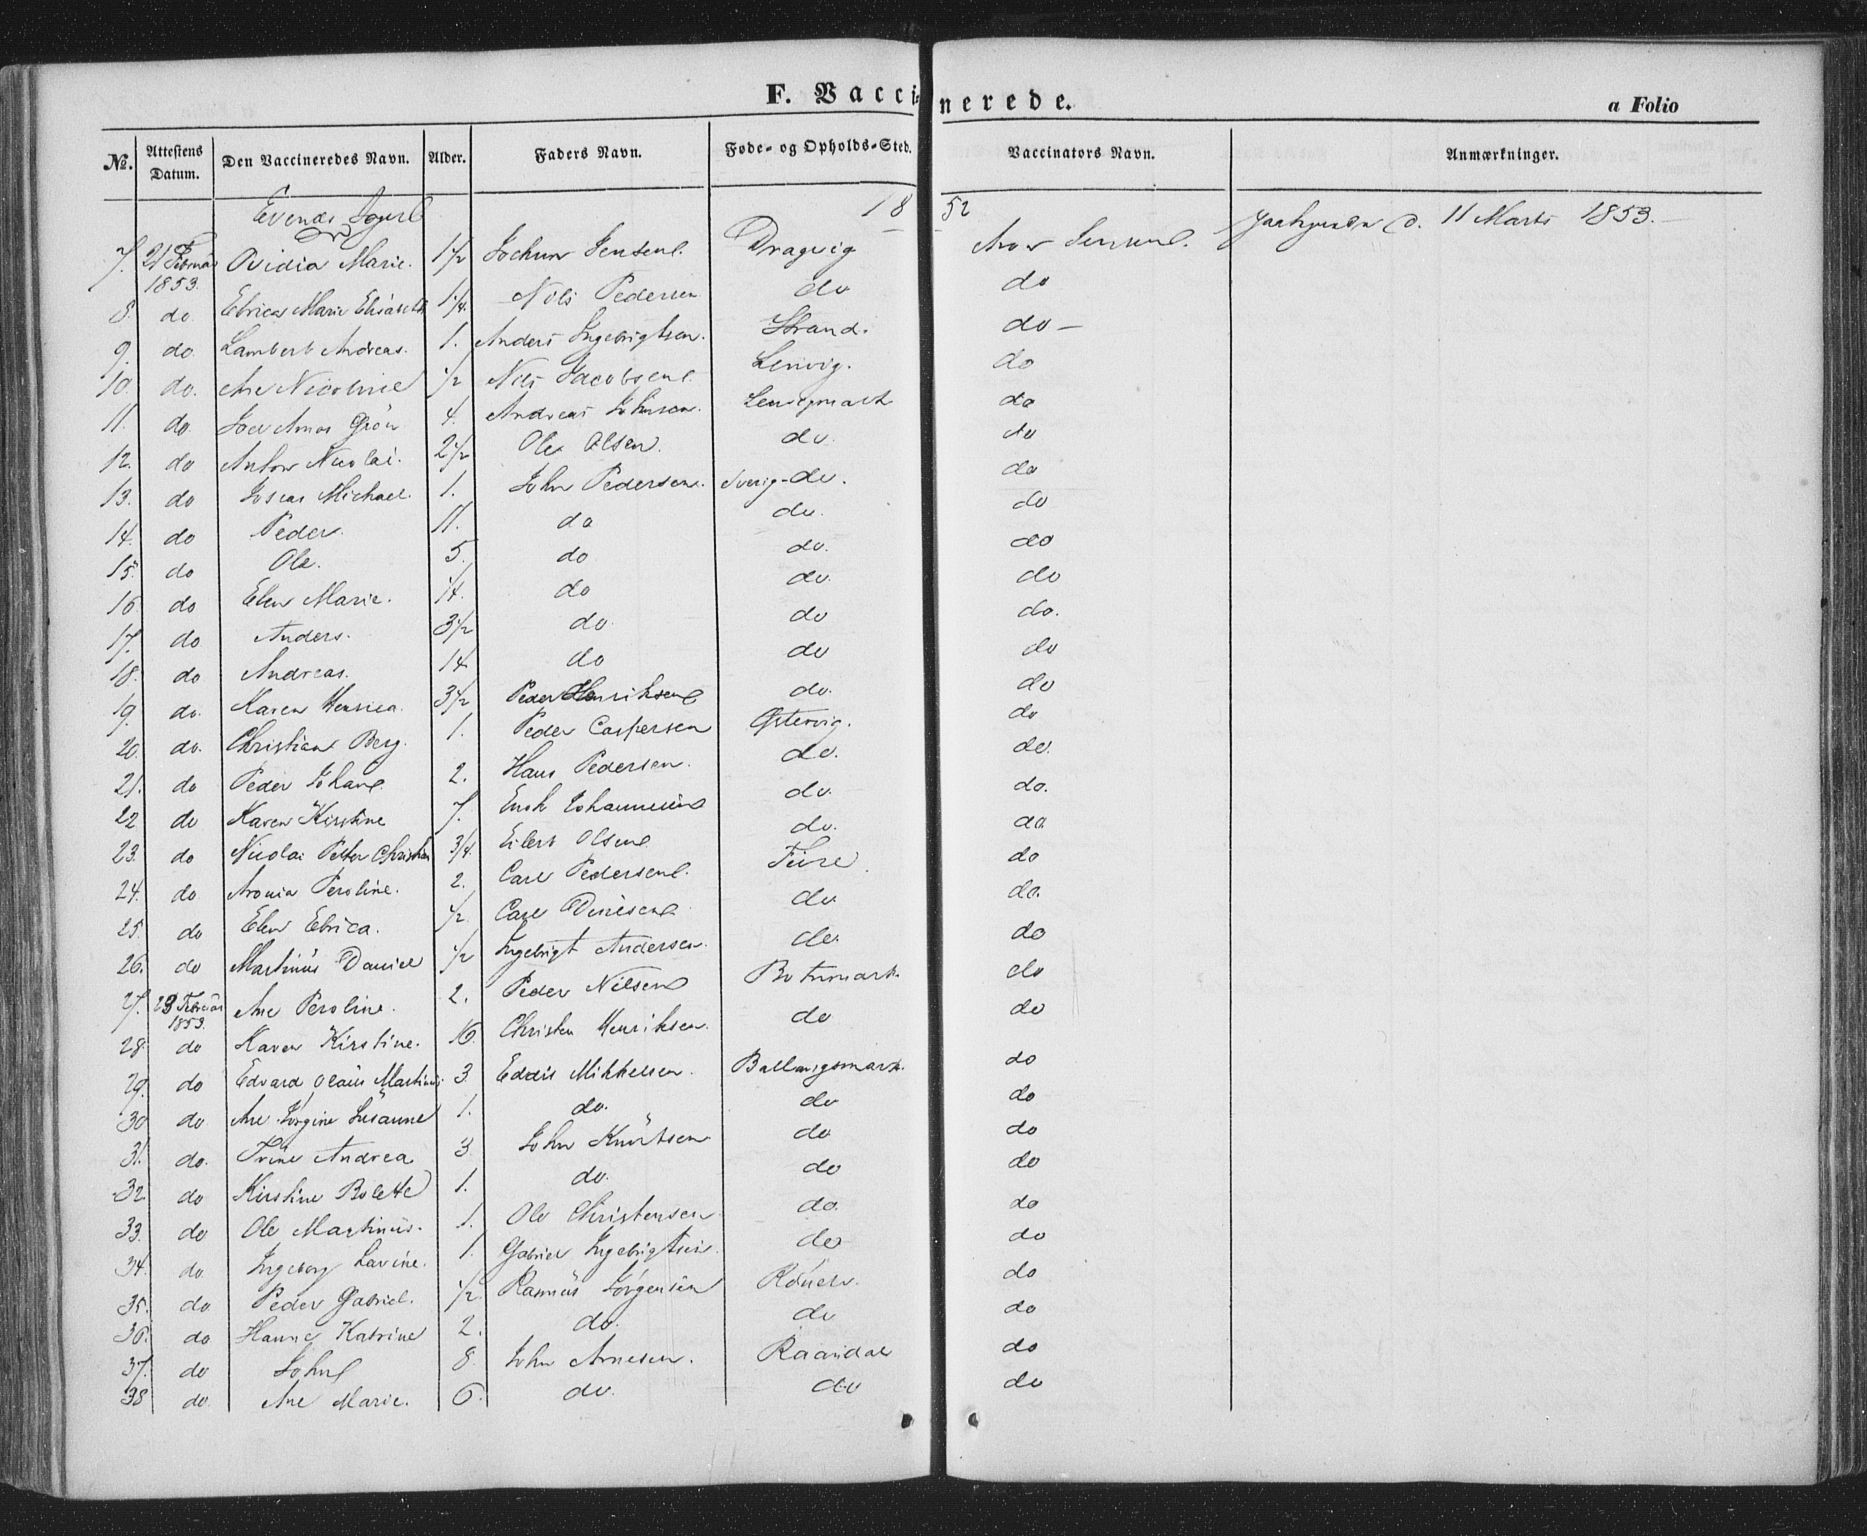 F. Vaccinerede.
a Folio
No. Attestens Datum. Den Vaccineredes Navn. Alder. Faders Navn. Føde- og Opholds-Sted. Vaccinators Navn. Anmærkninger.
Evenæs Sogn 1852
7. 21 Februar 1853. Ovidia Marie. 1 1/2 Jochum Jensen. Dragvig Aron Jensen. d. 11 Marts 1853.
8. do. Ebrica Marie Elisabeth 1 1/4. Nils Pedersen do do
9. do. Lambert Andreas. 1. Anders Ingebrigtsen. Strand. do
10. do. Ane Nicoline 1/2 Nils Jacobsen. Lenvig. do
11. do. Joel Amos Grön 4. Andreas Johnsen. Lenvigmark do
12. do Anton Nicolai. 2 1/2 Ole Olsen. do. do
13. do Michael. 1. John Pedersen. do. do
14. do Peder. 11. do do. do
15. do Ole. 5. do do. do
16 do Elen Marie. do do. do
17. do Anders. 3 1/2 do. do do.
18. do Andreas. 14 do do do
19. do. Karen Henrica. 3 1/2 Peder Henriksen do. do
20. do. Christian Berg. 1. Peder Caspersen Østervig. do
21. do Peder Johan 2. Hans Pedersen. do. do.
22 do Karen Kirstine 7. Johannesen do. do.
23. do Nicolai Petter Christian 3/4. Eilert Olsen do. do.
24. do Aronia Peroline. 2. Carl Pedersen. do
25. do Elen Ebrica. 1/2. Carl do do.
26. do Martinus Daniel 1/2 Ingebrigt Andersen. do. do
27. 23 Februar 1853. Ane Peroline. 2. Peder Nilsen Botnmark. do
28. do Karen Kirstine. 16. Christen Henriksen. do do
29. do Edvard Olaus Martinus 3. Eddis Mikkelsen. Ballangsmark. do
30 do Ane Jørgine Susanne 1. do. do do
31. do. Trine Andrea 3 John Knutsen do do
32. do Kirstine Bolette 1. do. do do
33. do Ole Martinus. 1. Ole Christensen do. do
34. do Ingeborg Lavine. 1. Gabriel Ingebrigtsen. do do
35. do Peder Gabriel. 1/2. Rasmus Jørgensen do
36. do Hanne Katrine 2. do. do do
37. do John 8. John Arnesen. Raandal do
38 do. Ane Marie. 6. do. do do